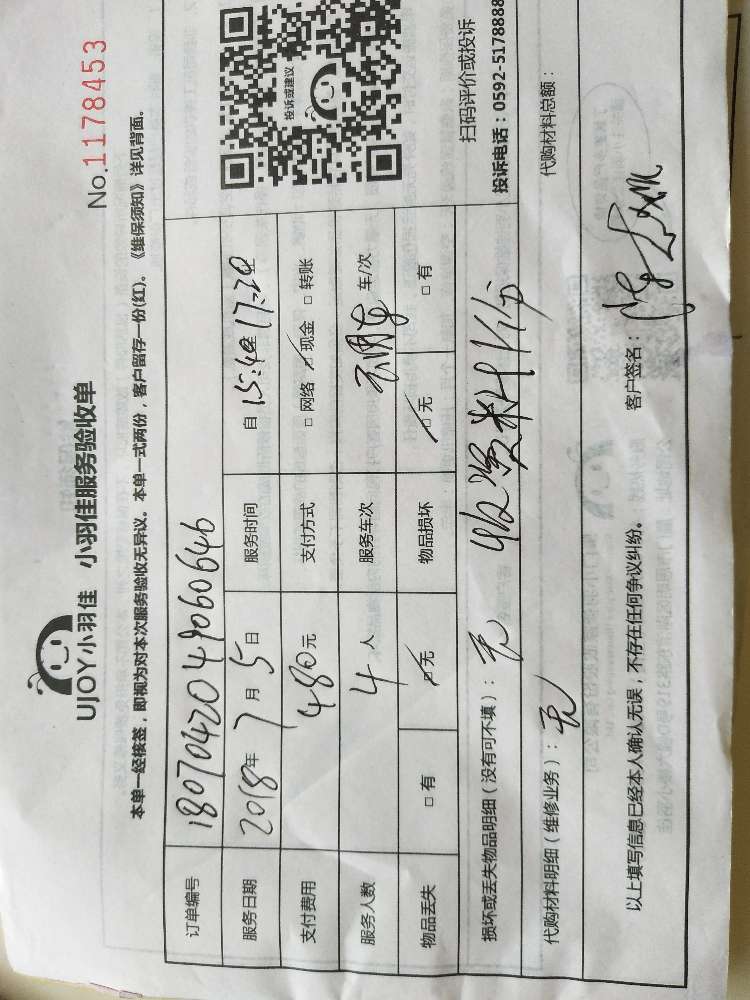 No.1178453
UJOY小羽佳 小羽佳服务验收单
本单一经核签，即视为对本次服务验收无异议。本单一式两份，客户留存一份(红)。《维保须知》详见背面。
订单编号 1807042049060646
服务日期 2018年 7 月 5 日 服务时间 自 15:40至17:20止
支付费用 480元 支付方式 □ 网络 □ 现金 □ 转账
服务人数 4 人 服务车次 车/次
物品丢失 □ 有 □ 无 物品损坏 □ 无 □ 有
损坏或丢失物品明细（没有可不填）： 无
代购材料明细（维修业务）： 无 代购材料总额：
以上填写信息已经本人确认无误，不存在任何争议纠纷。 客户签名：
投诉或建议
扫码评价或投诉
投诉电话：0592-5178888